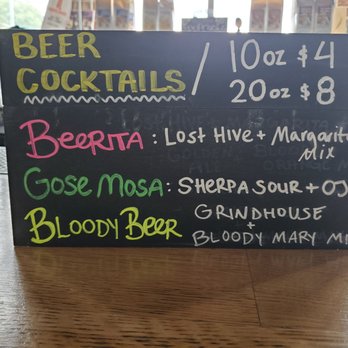 BEER COCKTAILS / 10oz $4
20oz $8
BEERITA: LOST HIVE + Margarita Mix
GOSE MOSA: SHERPA SOUR + OJ
BLOODY BEER GRINDHOUSE
+
BLOODY MARY